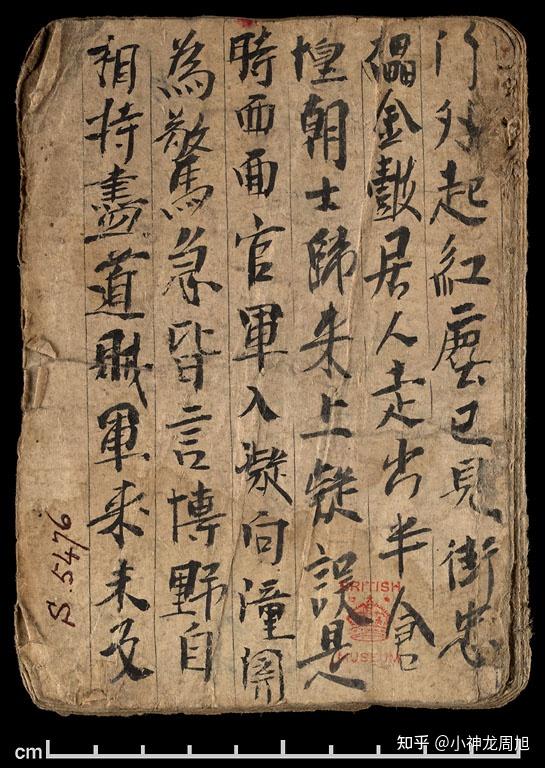 門外起紅塵已見街忠
櫑金鼓居人走出半倉
惶朝士歸来上疑誤是
時西面官軍入擬向潼關
為驚急皆言博野自
相持盡道賊軍来未及
S.5476
BRITISH
MUSEUM
cm
知乎 @小神龙周旭